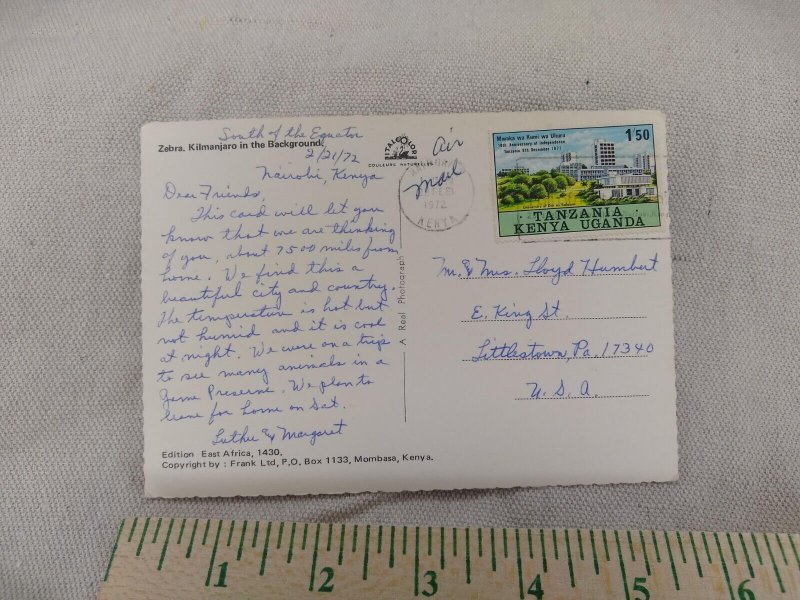 South of the Equator
Zebra. Kilmanjaro in the Background.
2/21/72
Nairobi, Kenya
Dear Friends,
This card will let you
know that we are thinking
of you, about 7500 miles from
home. We find this a
beautiful city and country.
The temperature is hot but
not humid and it is cool
at night. We were on a trip
to see many animals in a
Game Preserve. We plan to
leave for home on Sat.
Luther & Margaret
Edition East Africa, 1430.
Copyright by : Frank Ltd, P.O. Box 1133, Mombasa, Kenya.
ITALCOLOR
COULEURS NATURELLES
A Real Photograph
Air
Mail
1972
KENYA
Miaka wa Kumi wa Uhuru
10th Anniversary of Independence
Tanzania 9th December 1971
1'50
TANZANIA
KENYA UGANDA
Mr. & Mrs. Lloyd Humbert
E. King St.
Littlestown, Pa. 17340
U. S. A.
1 2 3 4 5 6